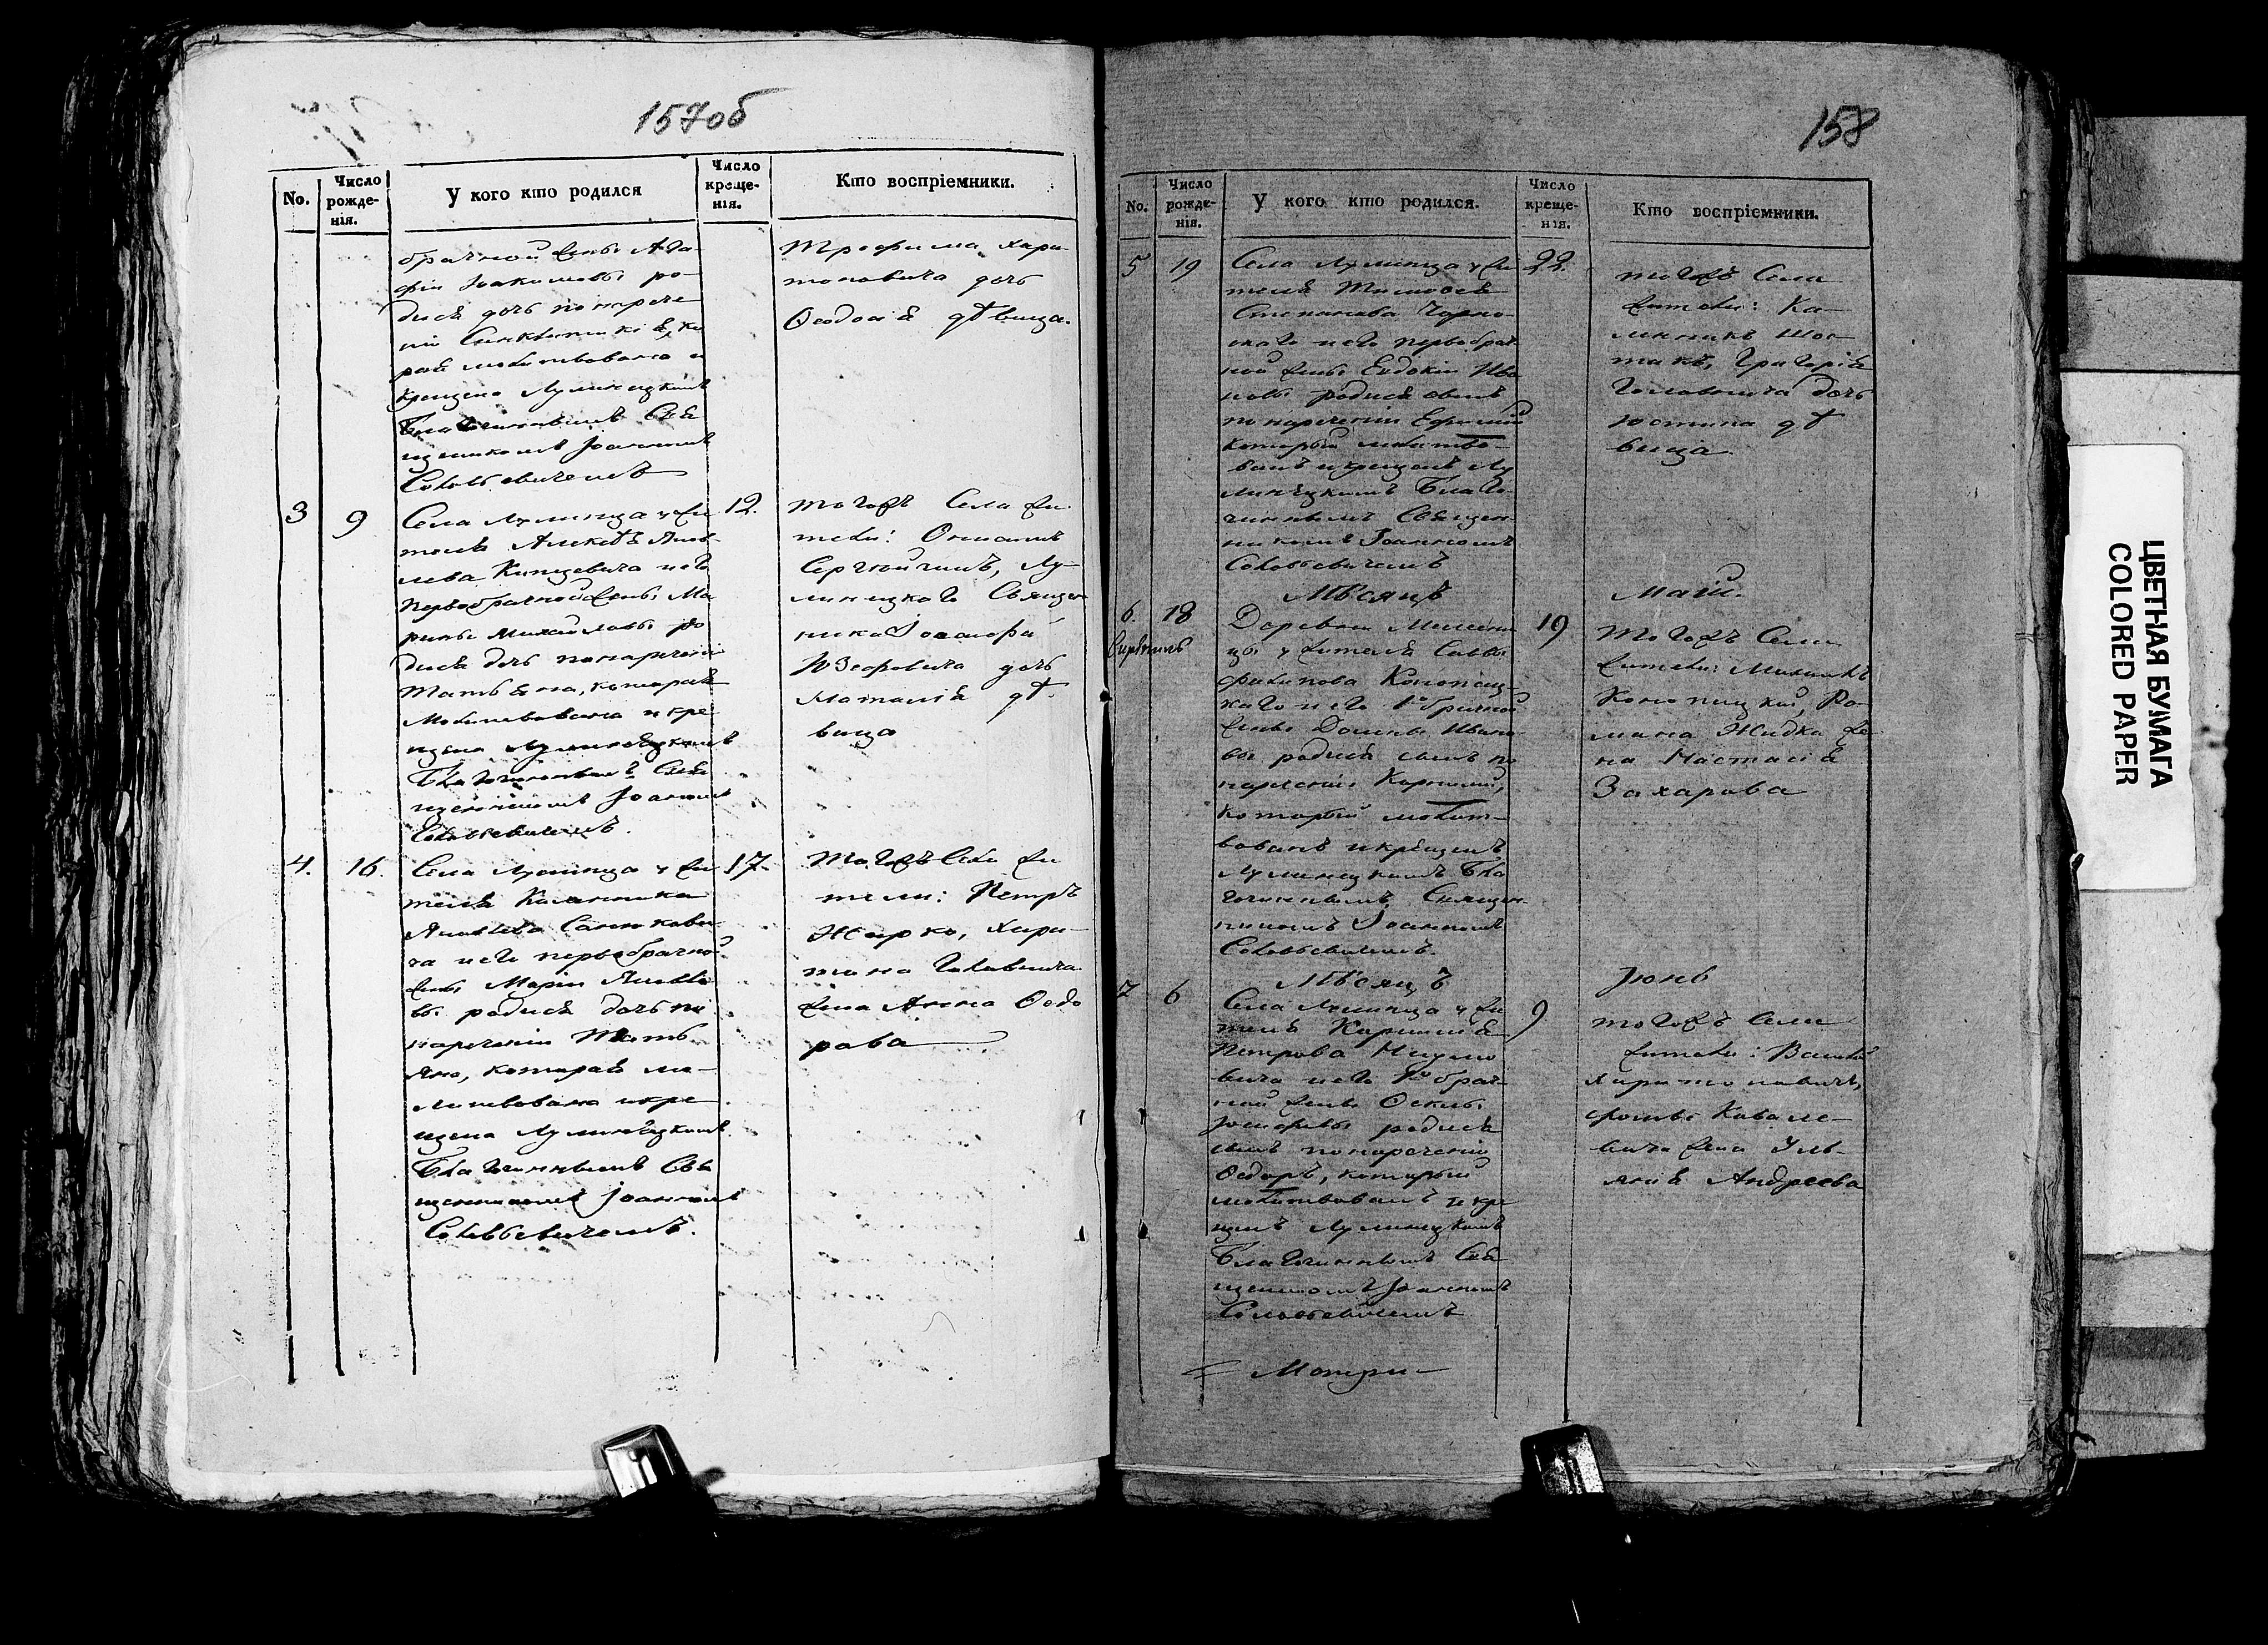 157об
No.
Число рожде-нія.
У кого кто родился
Число креще-нія.
Кто воспріемники.
брачной жены Ага-
фіи Іоакимовы ро-
дися дочь по нарече
ніи Синклитикія, ко
рая молитвована и
крещена Лулинецкимъ
Благочиннымъ Свя
щенникомъ Іоанномъ
Соловьевичемъ
Трофима Хари-
тоновича дочь
Ѳеодосія дѣвица.
3
9
Села Лулинца у жи
теля Алексѣя Яков-
лева Кунцевича и его
первобрачной жены Ма
рины Михайловы ро
дися дочь по наречении
Татьяна, которая
Молитвована и кре
щена Лулинецкимъ
Благочиннымъ Свя
щенникомъ Іоанномъ
Соловьевичемъ.
12.
тогожъ Села жи
тели:
Лу-
линецкаго Священ
ника
Юзефовича дочь
Наталія дѣ-
вица
4.
16.
Села Лулинца у жи
теля Калинника
Яковлева
ча и его первобрачной
жены Маріи Яковле
вы родися дочь по
наречении Тать
яна, которая мо-
литвована и кре
щена Лулинецкимъ
Благочиннымъ Свя
щенникомъ Іоанномъ
Соловьевичемъ.
17.
Тогожъ Села жи
тели: Петръ
Жирко, Хари-
тона Головчича
жена Анна Ѳедо
рова
158
No.
Число рожде-нія.
У кого кто родился.
Число креще-нія.
Кто воспріемники.
5
19
Села Лулинца у жи
теля Тимоѳея
Степанова Чорно-
каго и его первобрач
ной жены Евдокіи Ива
новы родися сынъ
по наречении Ефимій
который молитво
ванъ и крещенъ Лу
линецкимъ Благо-
чиннымъ Священ
никомъ Іоанномъ
Соловьевичемъ
22.
тогожъ Села
жители: Ка-
линникъ Шос-
такъ, Григорія
Головчича дочь
Юстина дѣ
вица.
Мѣсяцъ
Май.
6.
18
Деревни
цы у жителя Саввы
Филипова Конопац-
каго и его 1о брачной
жены Домны Ивано-
вы родися сынъ по
наречении Корнилий,
который молит-
вованъ и крещенъ
Лулинецкимъ Бла
гочиннымъ Священ-
никомъ Іоанномъ
Соловьевичемъ.
19
Тогожъ Села
жители: Михаилъ
Конопацкий, Ро-
мана Жидка же
на Настасія
Захарова
Мѣсяцъ
Іюнь
7
6
Села Лулинца у жи
теля Корнилія
Петрова Наумо
вича и его 1о брач-
ной жены Ѳеклы
Іосифовы родися
сынъ по наречении
Ѳедоръ, который
молитвованъ и кре
щенъ Лулинецкимъ
Благочиннымъ Свя
щенникомъ Іоанномъ
Соловьевичемъ
9
тогожъ Села
жители: Василій
Харитоновичъ,
Фомы Ковале-
вича жена Уль-
яна Андреева